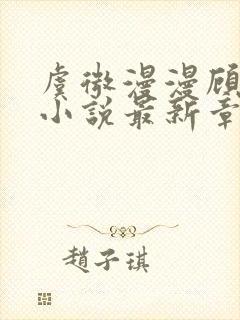 虞微漫漫顾
小说最新章
趙子琪